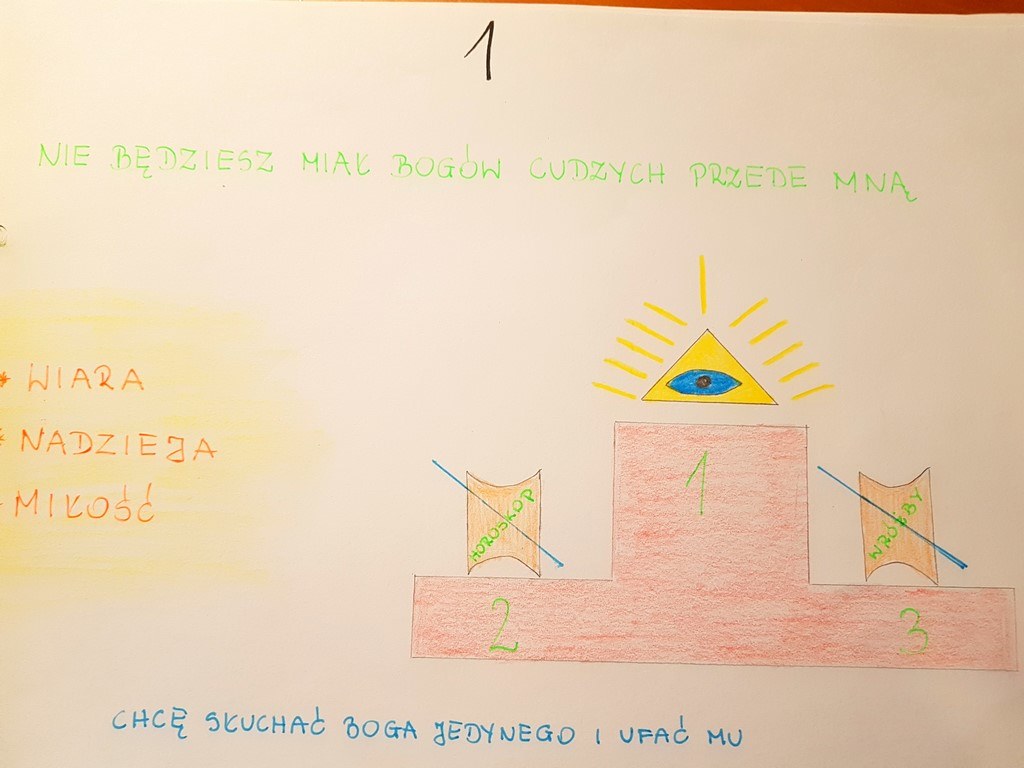 1
NIE BĘDZIESZ MIAŁ BOGÓW CUDZYCH PRZEDE MNĄ
* WIARA
* NADZIEJA
- MIŁOŚĆ
HOROSKOP
1
WRÓŻBY
2
3
CHCĘ SŁUCHAĆ BOGA JEDYNEGO I UFAĆ MU